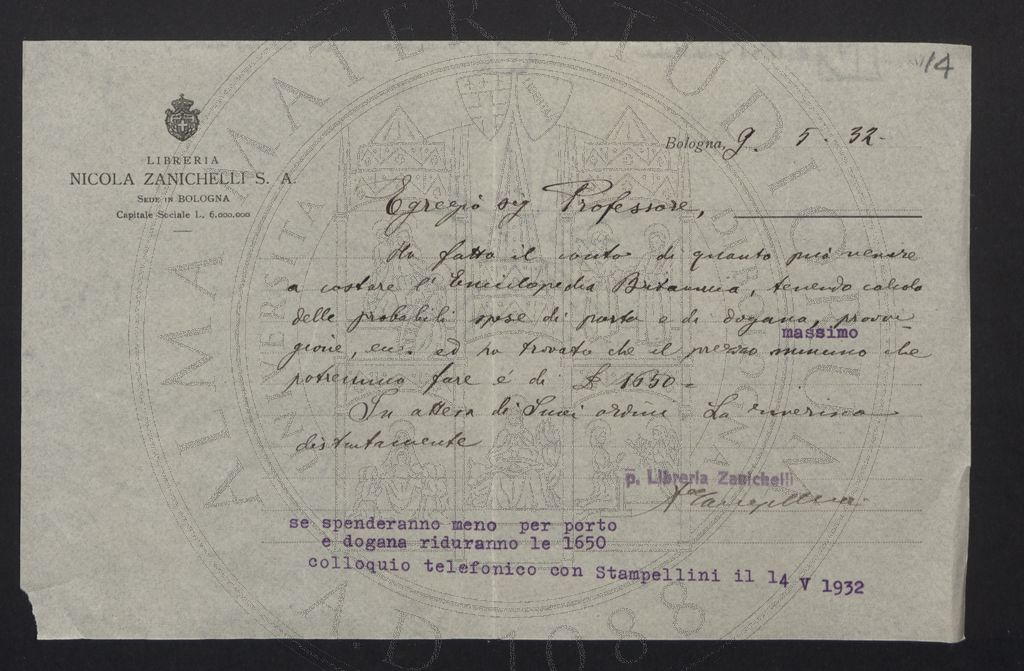 14
LIBRERIA
NICOLA ZANICHELLI S. A.
SEDE IN BOLOGNA
Capitale Sociale L. 6.000.000
Bologna, 9. 5. 32-
Egregio sig Professore,
Ho fatto il conto di quanto può venire
a costare l'Enciclopedia Britannica, tenendo calcolo
delle probabili spese di porto e di dogana, provvi
massimo
gione, ecc. ed ho trovato che il prezzo minimo che
potremmo fare é di £ 1650=
In attesa di Suoi ordini La riverisco
distintamente
p. Libreria Zanichelli
se spenderanno meno per porto
e dogana riduranno le 1650
colloquio telefonico con Stampellini il 14 V 1932
ALMA MATER STUDIORUM
A.D. 1088